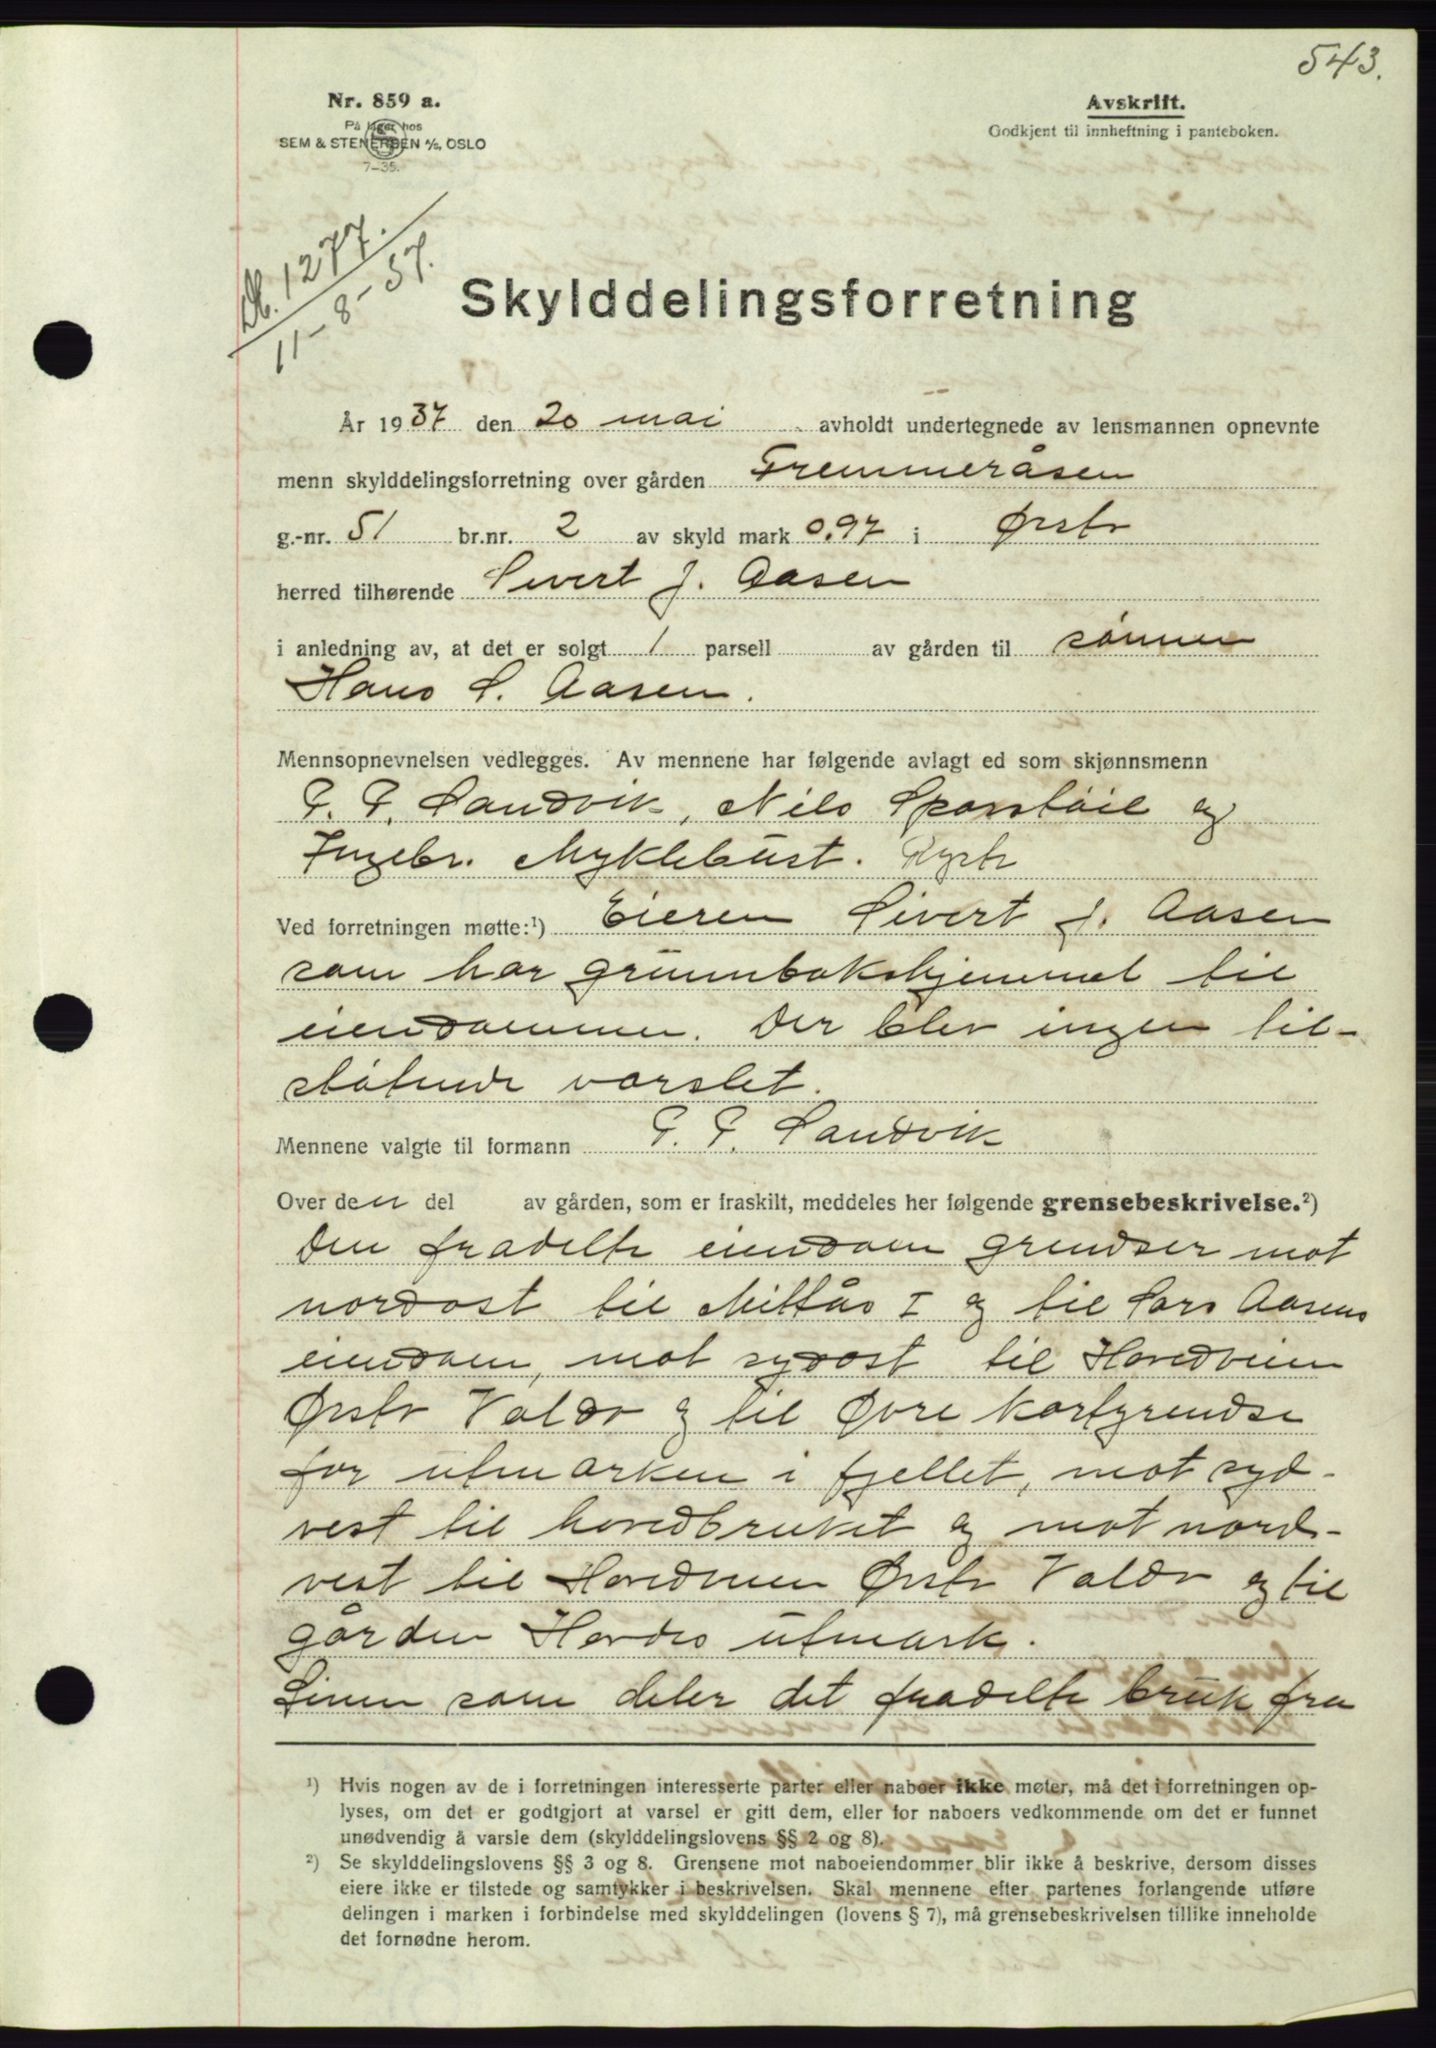 543.
Nr. 859 a.
På lager hos
SEM & STENERSEN A/S, OSLO
7-35.
Avskrift.
Godkjent til innheftning i panteboken.
Db. 1277.
11-8-37.
Skylddelingsforretning
År 1937 den 20 mai avholdt undertegnede av lensmannen opnevnte
menn skylddelingsforretning over gården Fremmeråsen
g.-nr. 51 br.nr. 2 av skyld mark 0,97 i Ørsta
herred tilhørende Sivert J. Aasen
i anledning av, at det er solgt 1 parsell av gården til sønnen
Hans S. Aasen.
Mennsopnevnelsen vedlegges. Av mennene har følgende avlagt ed som skjønnsmenn
P. P. Sandvik, Nils og
Ingebr. Myklebust.
Ved forretningen møtte:¹) Eieren Sivert J. Aasen
som har grunnbokshjemmel til
eiendommen. Der blev ingen til-
støtende varslet.
Mennene valgte til formann P. P. Sandvik
Over den del av gården, som er fraskilt, meddeles her følgende grensebeskrivelse.²)
Den fradelte eiendom grendser mot
nordost til Mittås I og til Lars Aasens
eiendom, mot sydost til Hovedveien
Ørsta Volda og til Øvre kartgrendse
for utmarken i fjellet, mot syd-
vest til hovedbruket og mot nord-
vest til Hovedveien Ørsta Volda og til
gården Hovdes utmark.
Linen som deler det fradelte bruk fra
¹) Hvis nogen av de i forretningen interesserte parter eller naboer ikke møter, må det i forretningen op-
lyses, om det er godtgjort at varsel er gitt dem, eller for naboers vedkommende om det er funnet
unødvendig å varsle dem (skylddelingslovens §§ 2 og 8).
²) Se skylddelingslovens §§ 3 og 8. Grensene mot naboeiendommer blir ikke å beskrive, dersom disses
eiere ikke er tilstede og samtykker i beskrivelsen. Skal mennene efter partenes forlangende utføre
delingen i marken i forbindelse med skylddelingen (lovens § 7), må grensebeskrivelsen tillike inneholde
det fornødne herom.